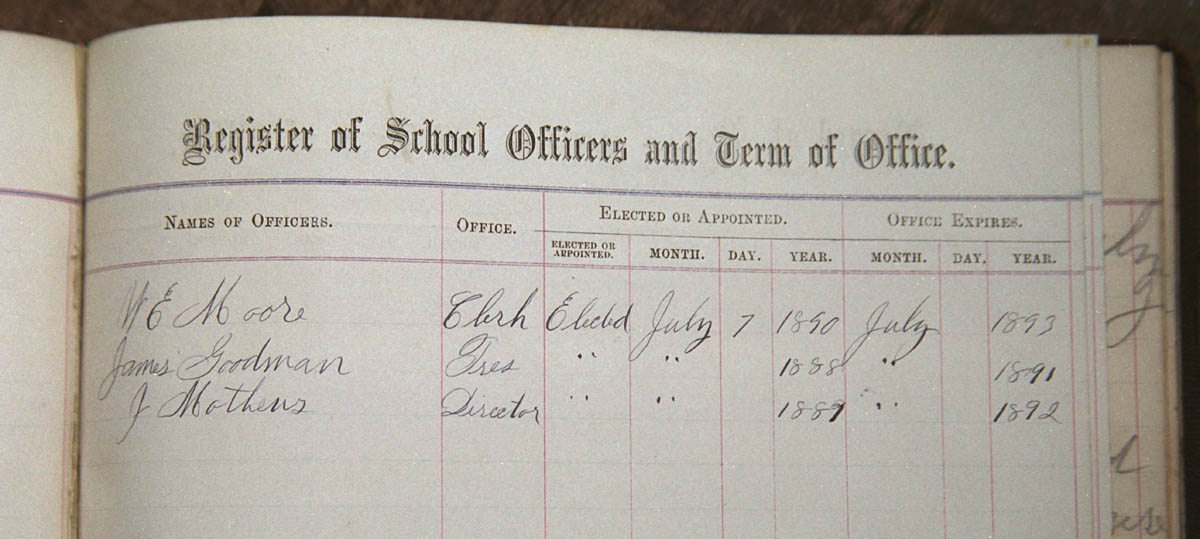 Register of School Officers and Term of Office.
NAMES OF OFFICERS. OFFICE. ELECTED OR APPOINTED. OFFICE EXPIRES.
ELECTED OR APPOINTED. MONTH. DAY. YEAR. MONTH. DAY. YEAR.
W E Moore Clerk Elected July 7 1890 July 1893
James Goodman Tres " " 1888 " 1891
J Mothens Director " " 1889 " 1892